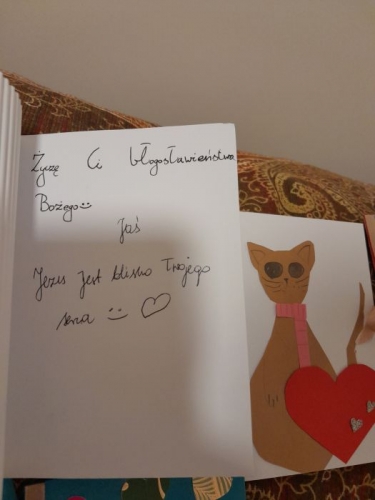 Życzę Ci błogosławieństwa
Bożego
Jaś
Jezus jest blisko Twojego
serca